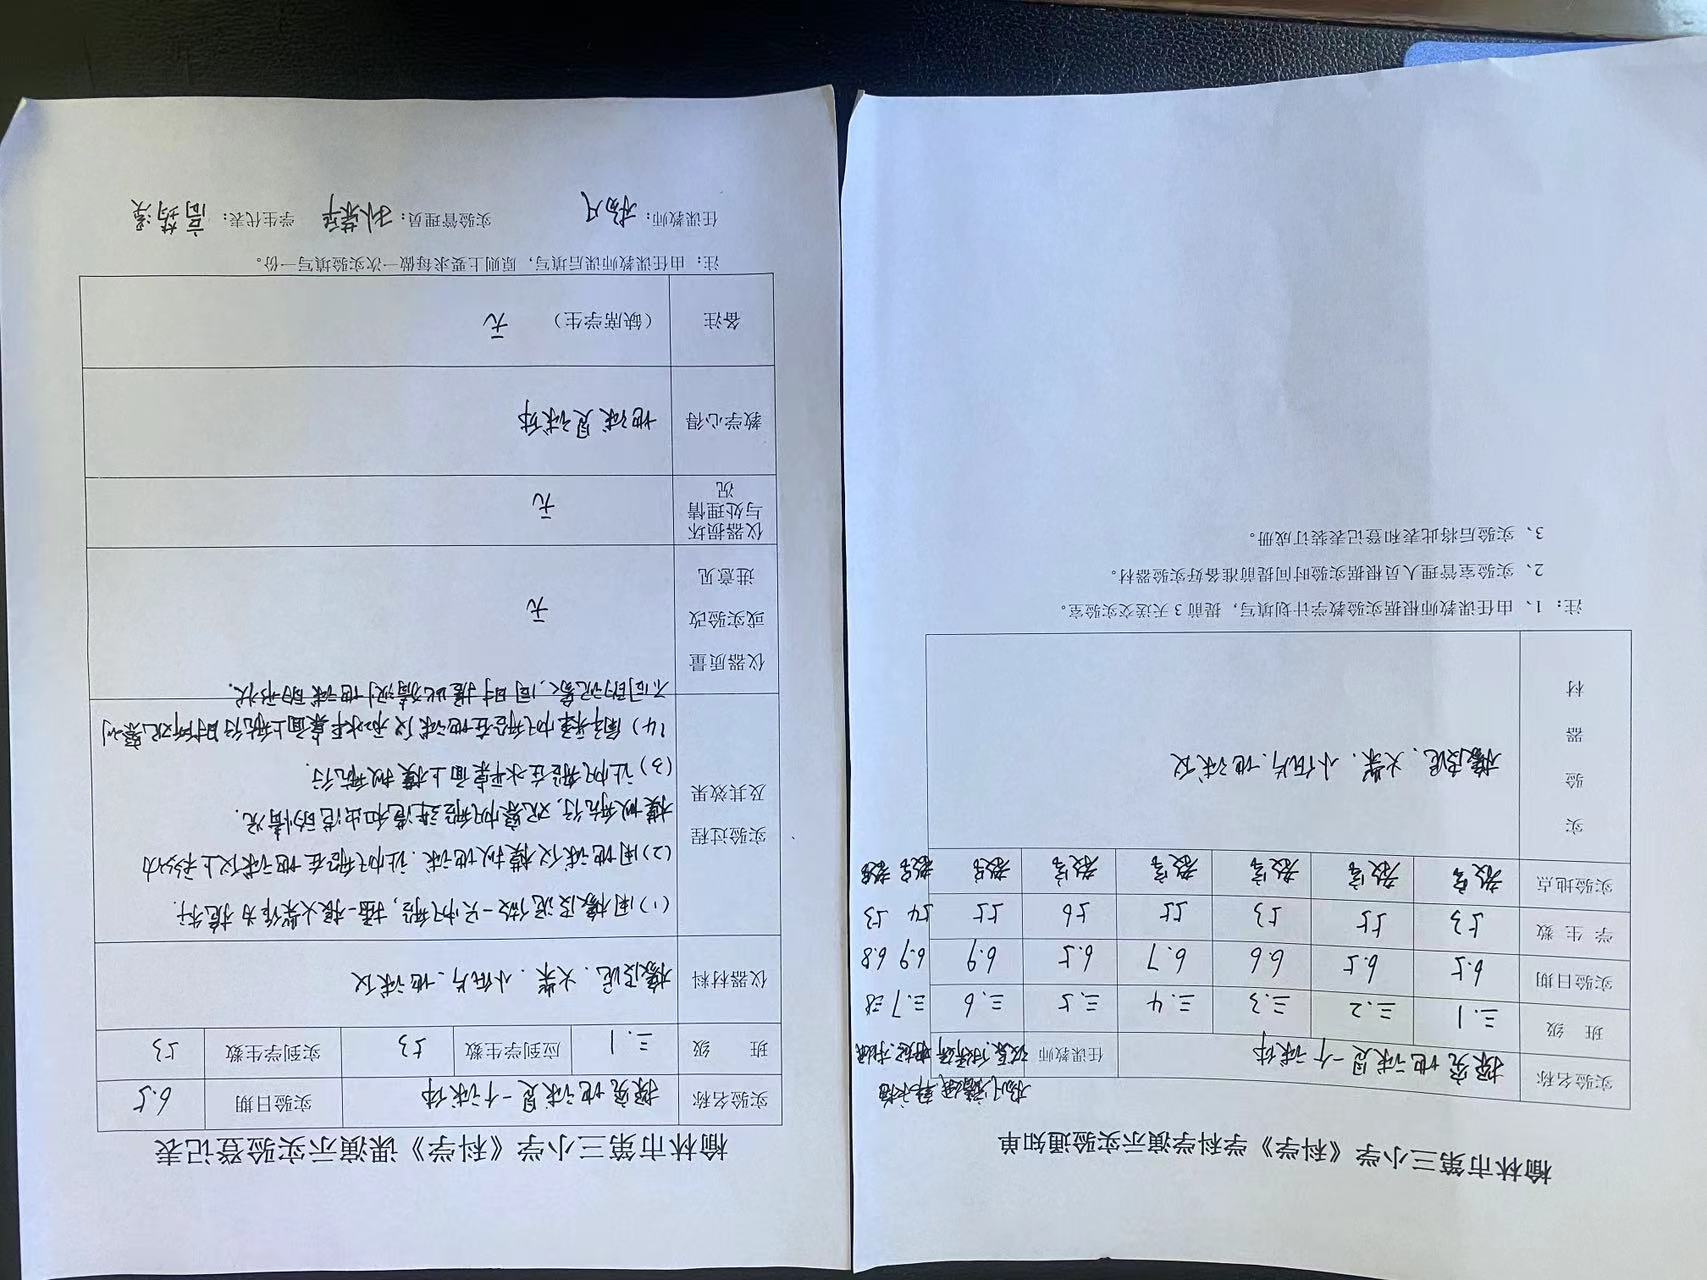 榆林市第三小学《科学》学科演示实验通知单
实验名称 探究地球是一个球体 任课教师
班 级 三.1 三.2 三.3 三.4 三.5 三.6 三.7 三.8
实验日期 6.5 6.5 6.6 6.7 6.5 6.9 6.9 6.8
学 生 数 53 55 53 55 56 55 54 53
实验地点 教室 教室 教室 教室 教室 教室 教室 教室
实验器材 橡皮泥、火柴、小纸片、地球仪
注：1、由任课教师根据实验教学计划填写，提前 3 天送交实验室。
2、实验室管理人员根据实验时间提前准备好实验器材。
3、实验后将此表和登记表装订成册。
榆林市第三小学《科学》课演示实验登记表
实验名称 探究地球是一个球体 实验日期 6.5
班 级 三.1 应到学生数 53 实到学生数 53
仪器材料 橡皮泥、火柴、小纸片、地球仪
实验过程及其效果
(1)用橡皮泥做一只帆船，插一根火柴作为桅杆.
(2)用地球仪模拟地球.让帆船在地球仪上移动
模拟航行，观察帆船进港和出港的情况.
(3)让帆船在水平桌面上模拟航行.
(4)解释帆船在地球仪和水平桌面上航行时所观察到
不同的现象，同时据此猜测地球的形状.
仪器质量或实验改进意见 无
仪器损坏与处理情况 无
教学心得 地球是球体
备注 (缺席学生) 无
注：由任课教师课后填写，原则上要求每做一次实验填写一份。
任课教师： 杨凡 实验管理员： 学生代表：